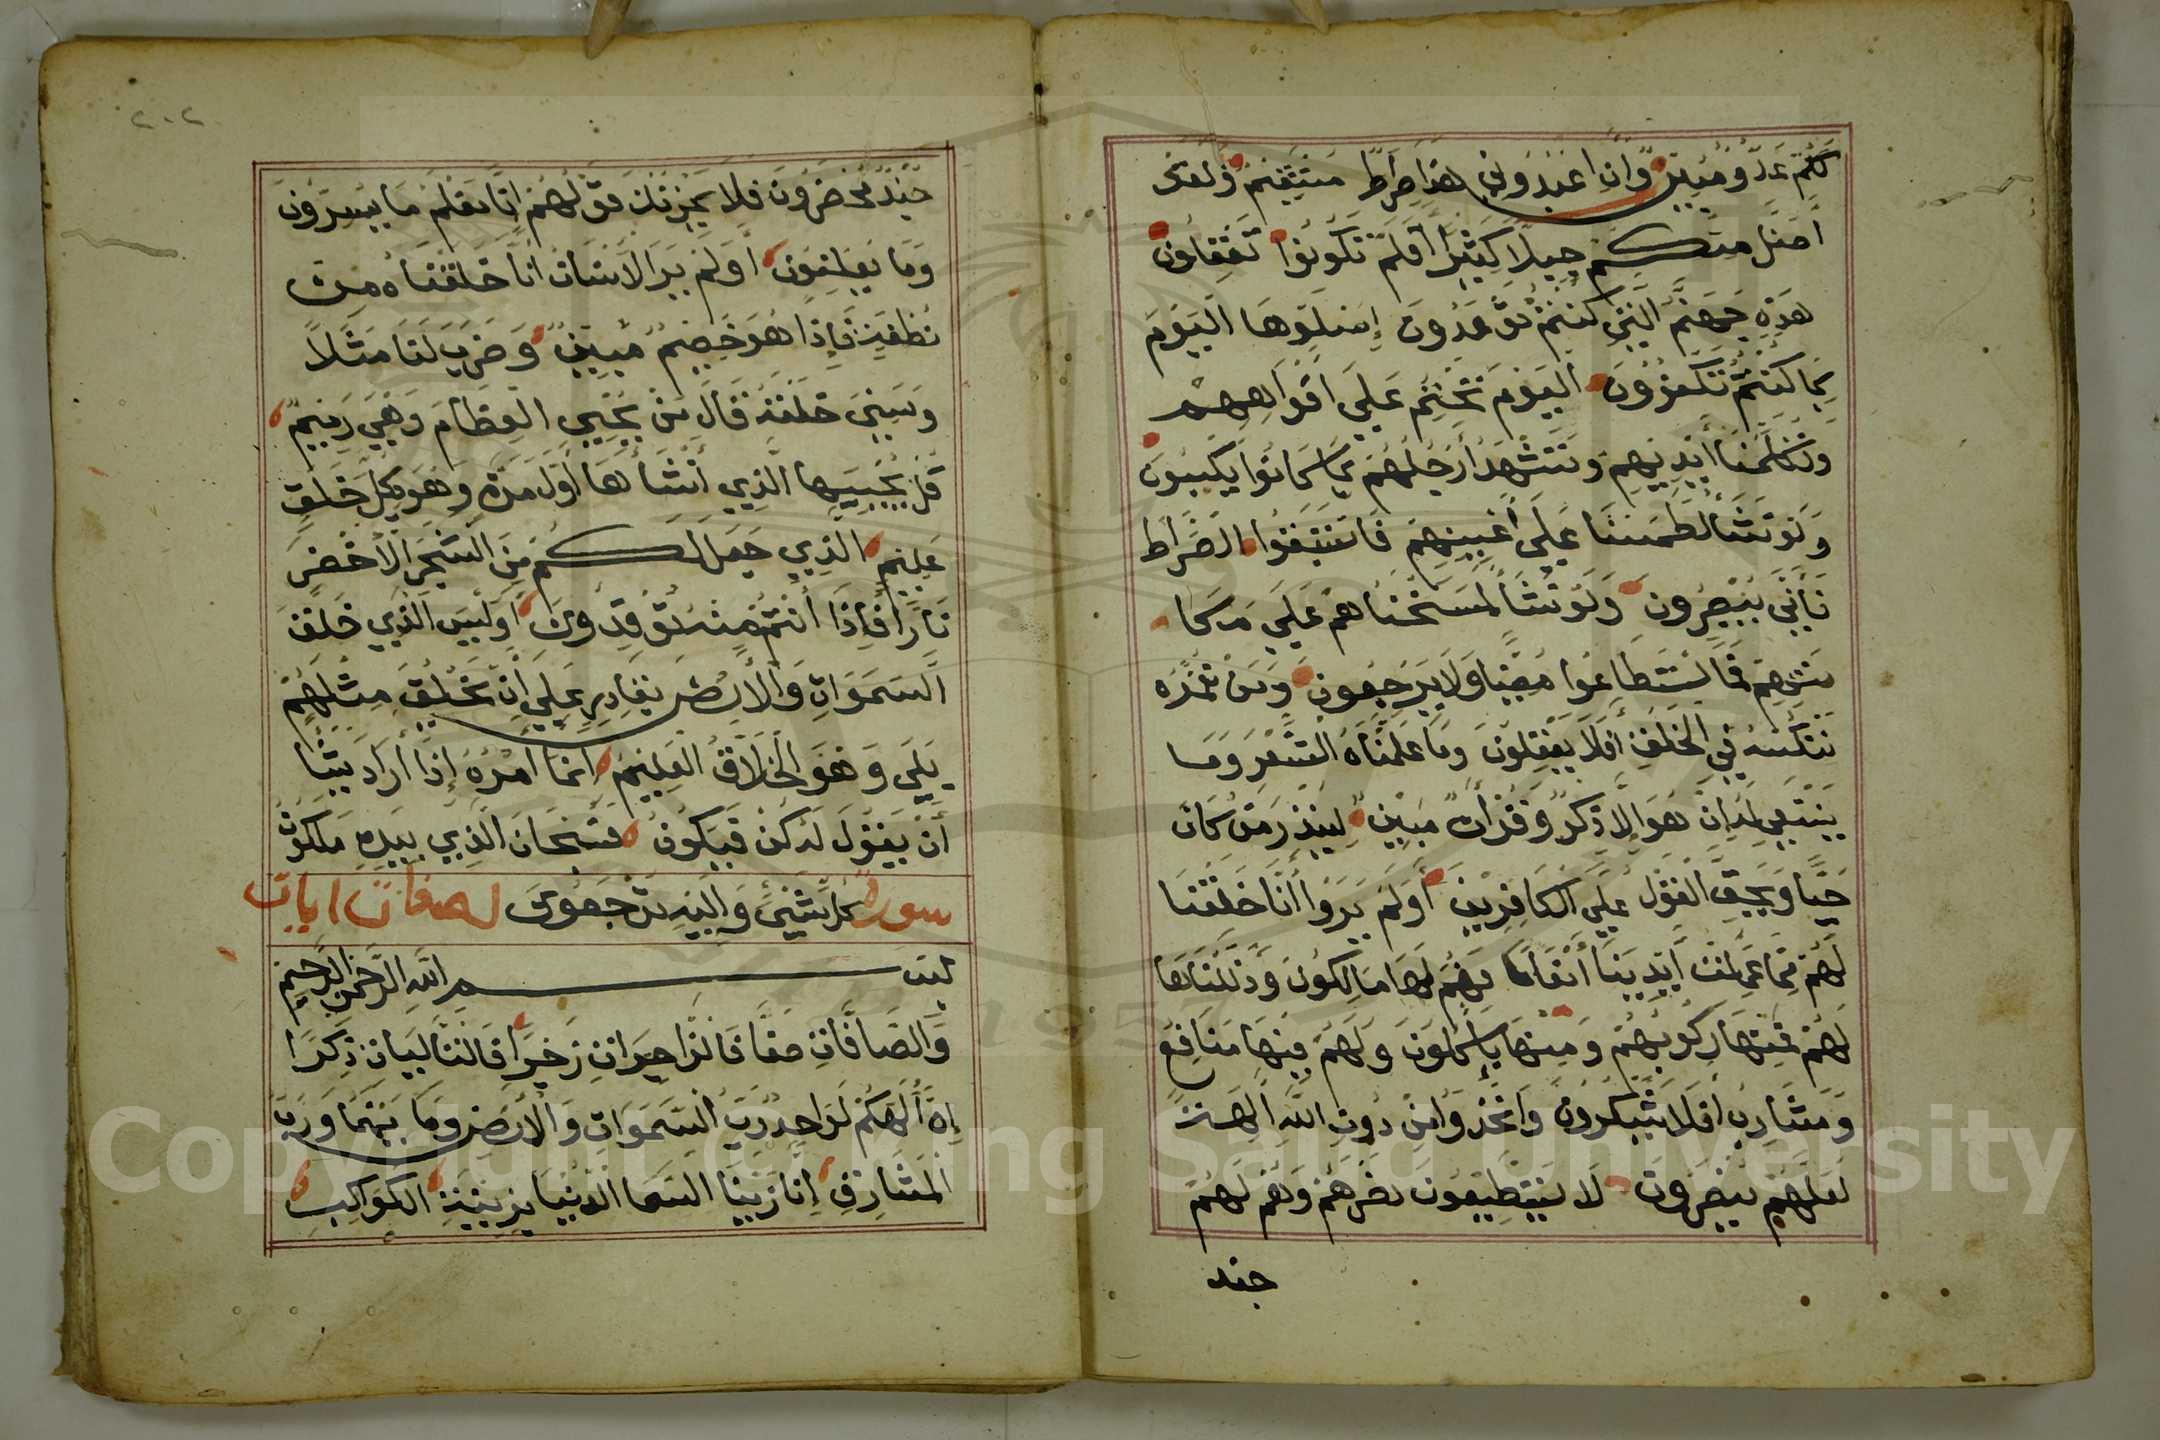 لكم عدو مبين وان اعبدوني هذا صراط مستقيم ولقد
أضل منكم جبلا كثيرا أفلم تكونوا تعقلون
هذه جهنم التي كنتم توعدون إصلوها اليوم
بما كنتم تكفرون اليوم نختم علي افواههم
وتكلمنا أيديهم وتشهد أرجلهم بما كانوا يكسبون
ولو نشأ لطمسنا علي أعينهم فاستبقوا الصراط
فأني يبصرون ولو نشأ لمسخناهم علي مكا
نتهم فما استطاعوا مضيا ولا يرجعون ومن نعمره
ننكسه في الخلق أفلا يعقلون وما علمناه الشعر وما
ينبغي له إن هو إلا ذكر وقرأن مبين لينذر من كان
حيا ويحق القول علي الكافرين أولم يروا أنا خلقنا
لهم مما عملت أيدينا أنعاما فهم لها مالكون وذللناها
لهم فمنها ركوبهم ومنها يأكلون ولهم فيها منافع
ومشارب أفلا يشكرون واتخذوا من دون الله الهة
لعلهم ينصرون لا يستطيعون نصرهم وهم لهم
جند
٢٠٢
جند محضرون فلا يحزنك قولهم إنا نعلم ما يسرون
وما يعلنون أولم ير الانسان أنا خلقناه من
نطفة فإذا هو خصيم مبين وضرب لنا مثلا
ونسي خلقه قال من يحيي العظام وهي رميم
قل يحييها الذي أنشأها أول مرة وهو بكل خلق
عليم الذي جعل لكم من الشجر الأخضر
نارا فإذا أنتم منه توقدون أوليس الذي خلق
السموات والأرض بقادر علي أن يخلق مثلهم
بلي وهو الخلاق العليم انما أمره إذا أراد شيئا
أن يقول له كن فيكون فسبحان الذي بيده ملكوت
سورة كل شيئ واليه ترجعون لصفات ايات
بسم الله الرحمن الرحيم
والصافات صفا فالزاجرات زجرا فالتاليات ذكرا
إن ألهكم لواحد رب السموات والأرض وما بينهما ورب
المشارق إنا زينا السما الدنيا بزينة الكواكب
Copyright © King Saud University